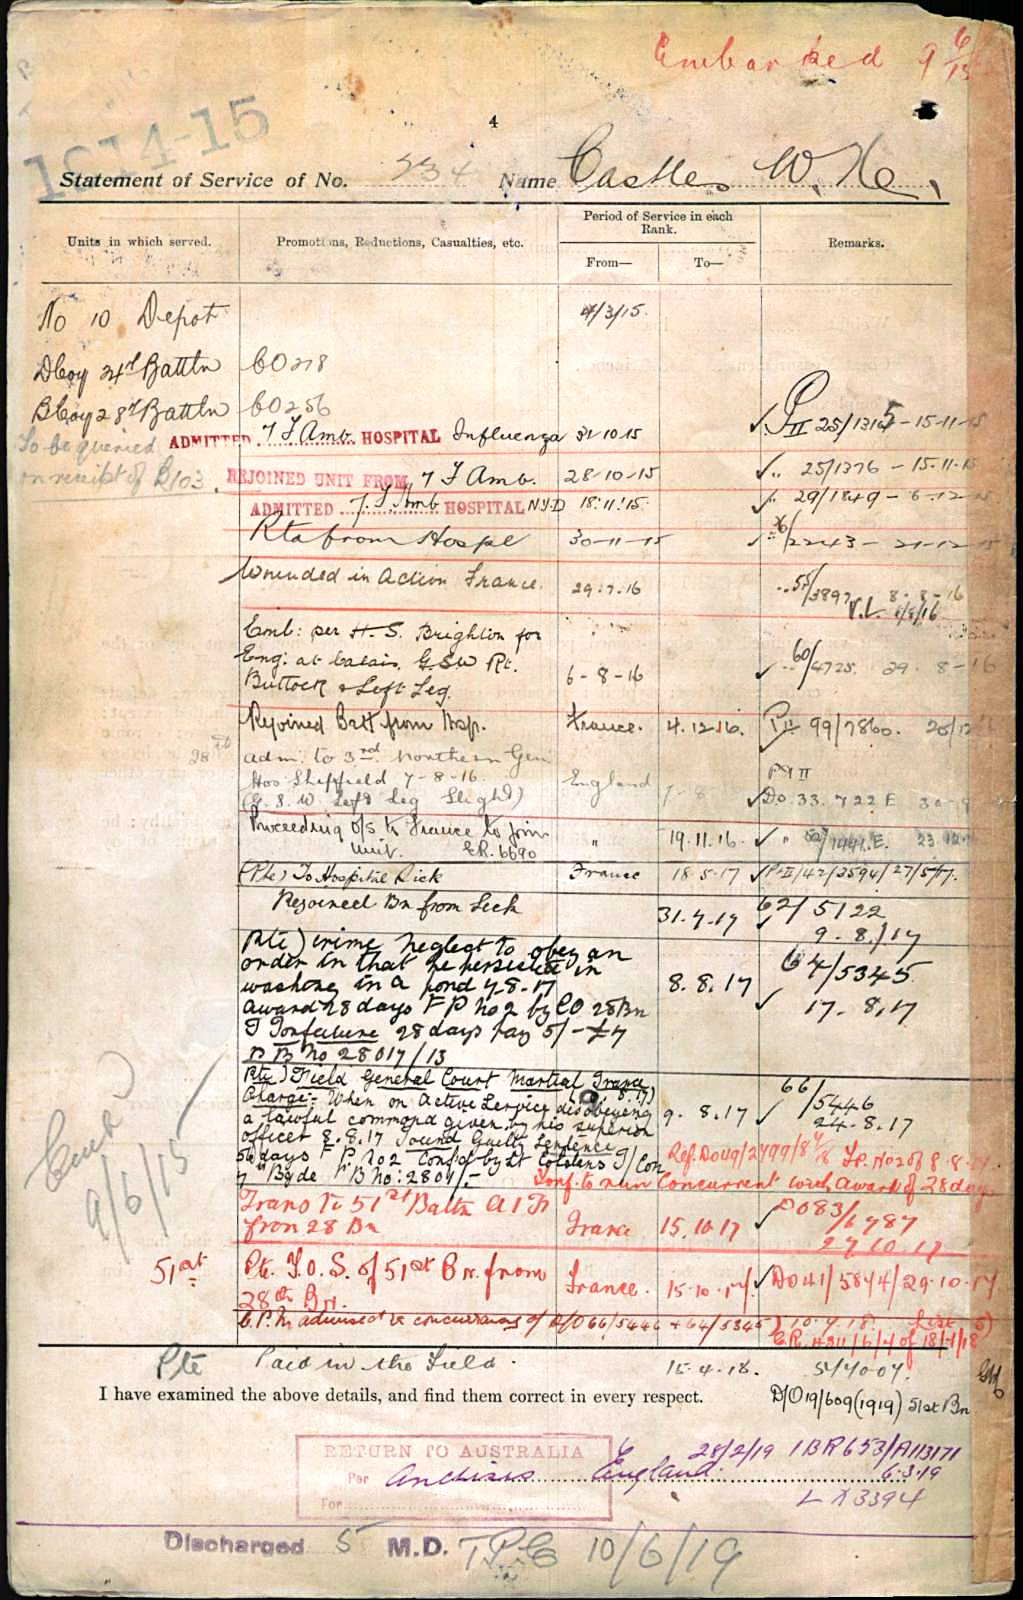 Embarked 9 6/15
1914-15
4
Statement of Service of No. 234 Name Castles W. He.
Units in which served.
Promotions, Reductions, Casualties, etc.
Period of Service in each Rank.
From—
To—
Remarks.
No 10 Depot 4/3/15.
DCoy 24th Battln CO278
BCoy 28th Battln CO256
To be queried
on receipt of B103.
ADMITTED 7 F Amb. HOSPITAL Influenza 31-10-15 PII 25/1315 - 15-11-15
REJOINED UNIT FROM 7 F Amb. 28-10-15 " 25/1376 - 15.11.15
ADMITTED 7. F Amb HOSPITAL N.Y.D 18.11.15. 29/1849 - 6-12-15
Rtd from Hospl 30-11-15 2243 - 21-12-15
Wounded in Action France. 29.7.16 55/3897 8-8-16
V.L. 8/8/16
Emb: per H.S. Brighton for
Eng: at Calais. G.S.W Rt.
Buttock & Left Leg. 6-8-16 60/4725. 29. 8-16
Rejoined Batt from Hosp. France. 4.12.16. PII 99/7860.
28th
adm. to 3rd Northern Gen
Hos Sheffield 7-8-16.
(G.S.W Left Leg Slight) England 7-8 Pt II Do. 33. 722 E 30-9
Proceeding o/s to France to join
unit. ER. 6690 " 19.11.16.
(Pte) To Hospital Sick France 18.5.17 P.II/42/3594/27/5/17.
Rejoined Bn from Sick 31.7.17 62/5122
9-8-17
Pte) crime neglect to obey an
order in that he persisted in
washing in a pond 7-8-17
award 28 days F P No 2 by CO 28Bn
T Forfeiture 28 days pay 5/- £7
B B No 28017/13
8.8.17 64/5345
17-8.17
Pte) Field General Court Martial France
Charge:- When on Active Service disobeying
a lawful command given by his superior
officer 8.8.17 Found Guilty Sentence
days F P No2 Conf'd by Lt Col
Bgde
9.8.17 66/5446
24.8.17
F.P. No2 of 8.8.17
to run Concurrent with award of 28 days
Trans to 51st Battn A I F
from 28 Bn France 15.10.17 DO83/6787
27 10 17
51st
Pt. T.O.S. of 51st Bn. from
28th Bn. France. 15-10-17. DO41/5874/29.10.17
C.P.M. advised re concurrency of D/O 66/5446 & 64/5345) 10.4.18. List 5)
Card
9/6/15
Pte Paid in the Field. 15.4.18. 5/4007.
I have examined the above details, and find them correct in every respect. D/O 19/609(1919) 51st Bn
RETURN TO AUSTRALIA
Per Anchises England. 28/2/19 1BR653/A113171
6.3.19
For
L X3394
Discharged 5 M.D. T.P.E 10/6/19